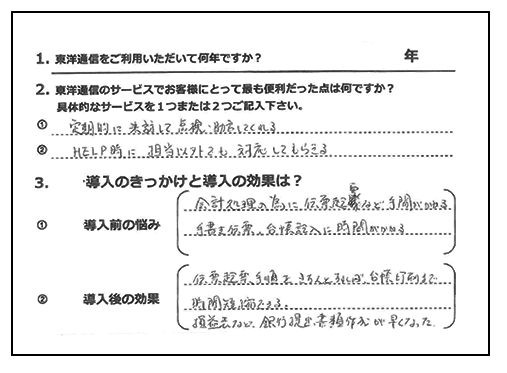 1. 東洋通信をご利用いただいて何年ですか? 年
2. 東洋通信のサービスでお客様にとって最も便利だった点は何ですか?
具体的なサービスを1つまたは2つご記入下さい。
① 定期的に来訪して点検・助言してくれる
② HELP時に担当以外でも対応してもらえる
3. ・導入のきっかけと導入の効果は?
① 導入前の悩み
会計処理の為に伝票起票など手間がかかる
手書き伝票、台帳記入に時間がかかる
② 導入後の効果
伝票起票、手順できちんとすれば台帳印刷まで
時間短縮できる。
損益表など、銀行提出書類作成が早くなった